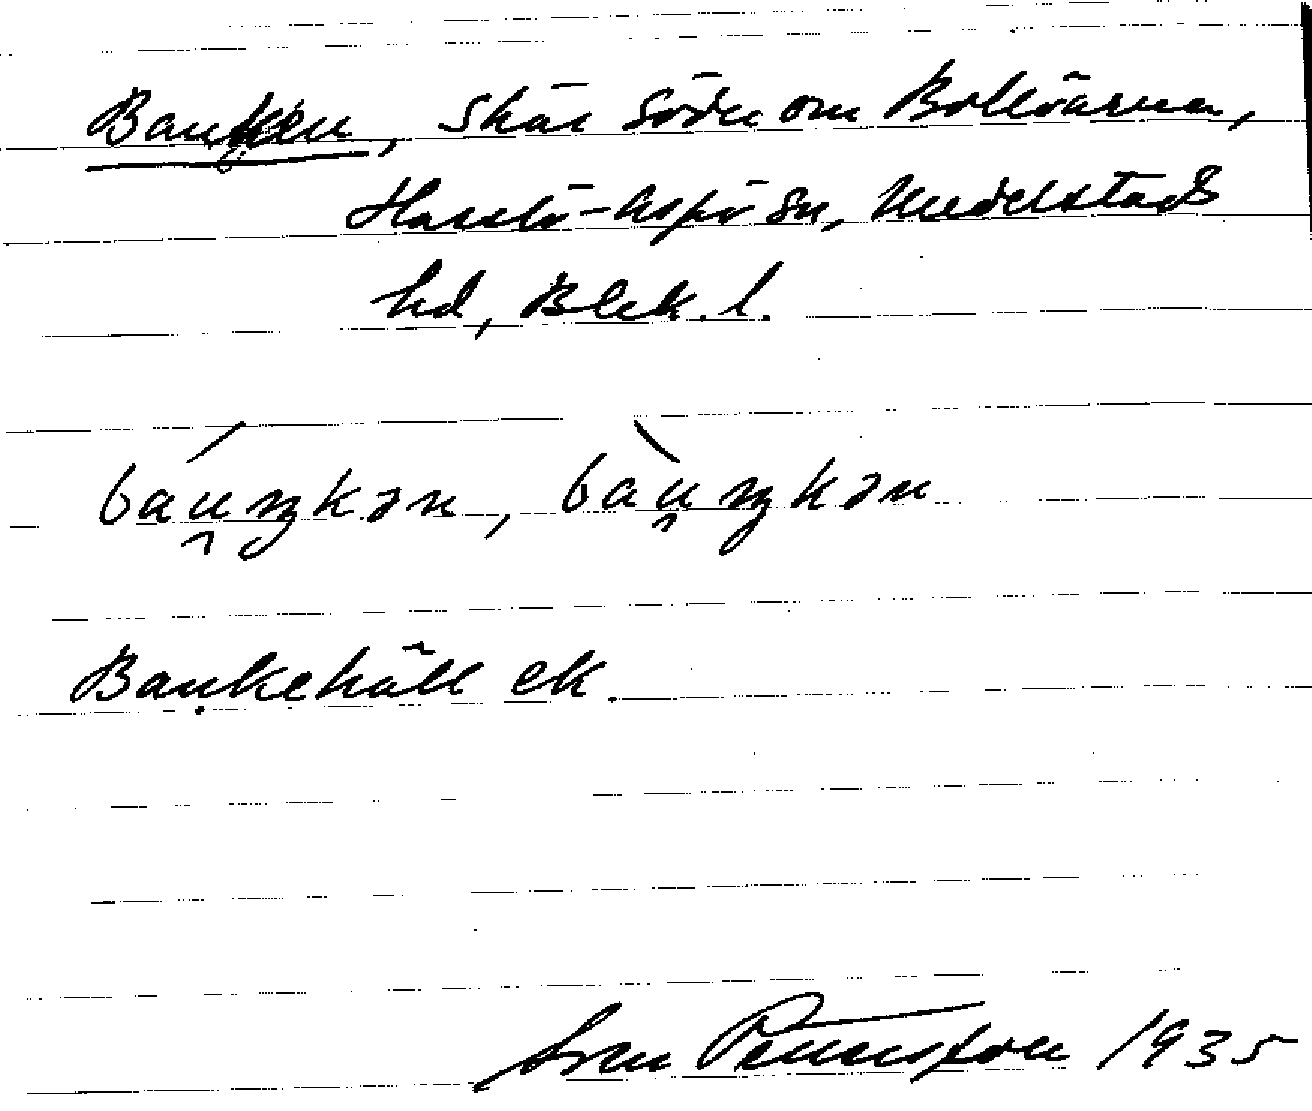 Banken, skär söder om Bollöarna,
Hasslö-Aspö sn, Medelstads
hd, Blek. l.
báu̯ŋkən, bàu̯ŋkən
Baṇkehäll ek.
Sven Benson 1935